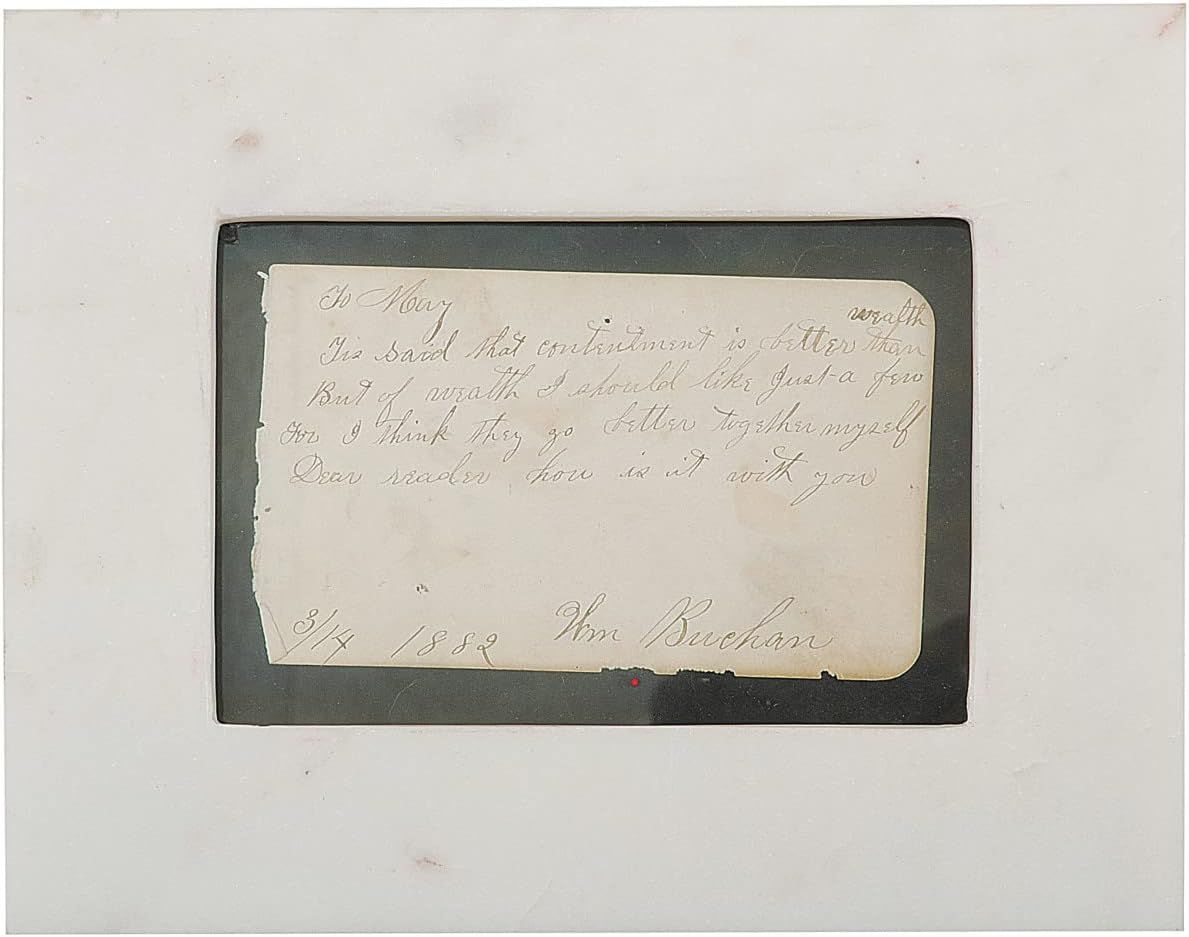 To May
wealth
Tis said that contentment is better than
But of wealth I should like just a few
For I think they go better together myself
Dear reader how is it with you
3/14 1882 Wm Buchan